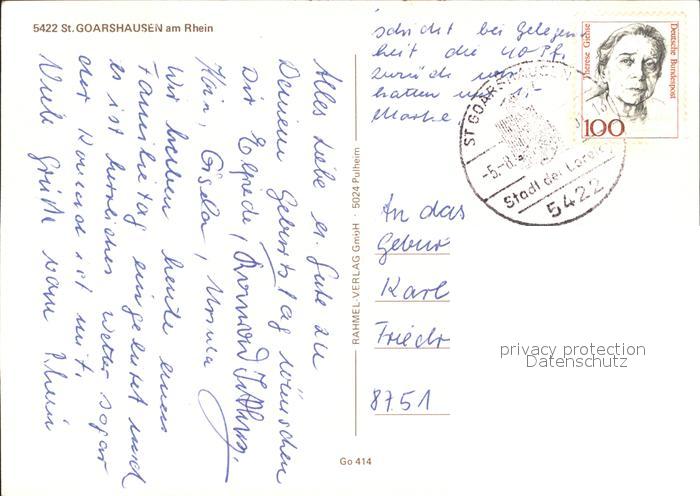 5422 St. GOARSHAUSEN am Rhein
Alles Liebe u. Gute zu
Deinem Geburtstag wünschen
Dir Elfriede,
Hain, Gisela, Ursula
Wir haben heute einen
Familientag eingelegt und
es ist herrliches Wetter sogar
der Konrad ist mit.
Viele Grüße vom Rhein
RAHMEL-VERLAG GmbH · 5024 Pulheim
schickt bei Gelegen
heit die 40 Pf.
zurück wir
hatten nur 1,-
Marke
Therese Giehse
Deutsche Bundespost
100
ST GOARSHAUSEN
-5.-8.
Stadt der Lorel
5422
An das
Gebur
Karl
Friedr
8751
privacy protection
Datenschutz
Go 414